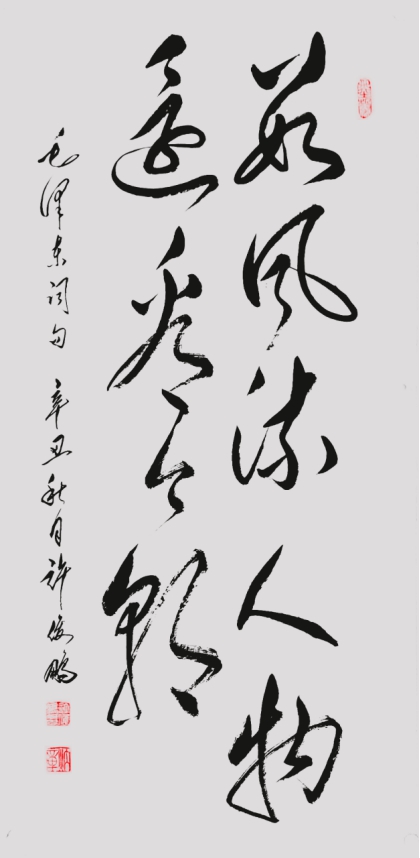 数风流人物
还看今朝
毛泽东词句 辛丑秋月许俊鹏